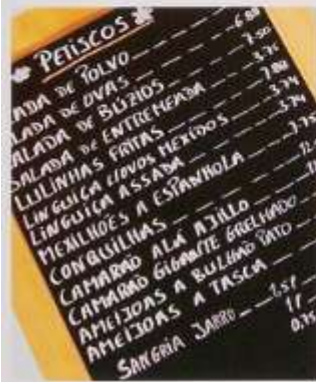 PETISCOS
ADA DE POLVO 6.80
LADA DE OVAS 7.50
ALADA DE BUZIOS 3.75
SALADA DE ENTREMEADA 7.80
LULINHAS FRITAS 3.74
LINGUIÇA C/OVOS MEXIDOS 3.74
LINGUIÇA ASSADA
MEXILHÕES A ESPANHOLA 7.75
CONQUILHAS
CAMARÃO ALA AJILLO
CAMARÃO GIGANTE GRELHADO
AMEIJOAS A BULHÃO PATO
AMEIJOAS A TASCA
SANGRIA JARRO 1,5l
1l
0.75